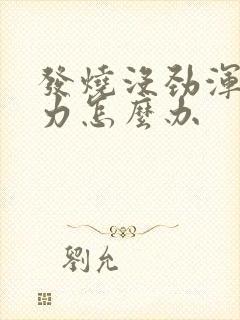 發燒沒勁渾
力怎麼办
劉允